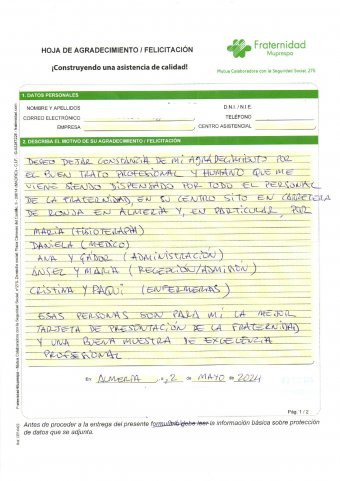 HOJA DE AGRADECIMIENTO / FELICITACIÓN
¡Construyendo una asistencia de calidad!
Fraternidad
Muprespa
Mutua Colaboradora con la Seguridad Social, 275
1. DATOS PERSONALES
NOMBRE Y APELLIDOS
D.N.I. / N.I.E.
CORREO ELECTRÓNICO
TELÉFONO
EMPRESA
CENTRO ASISTENCIAL
2. DESCRIBA EL MOTIVO DE SU AGRADECIMIENTO / FELICITACIÓN
DESEO DEJAR CONSTANCIA DE MI AGRADECIMIENTO POR
EL BUEN TRATO PROFESIONAL Y HUMANO QUE ME
VIENE SIENDO DISPENSADO POR TODO EL PERSONAL
DE LA FRATERNIDAD, EN SU CENTRO SITO EN CARRETERA
DE RONDA EN ALMERÍA Y, EN PARTICULAR, POR
MARÍA (FISIOTERAPIA)
DANIELA (MEDICO)
ANA Y GÁDOR (ADMINISTRACIÓN)
ÁNGEL Y MARIA (RECEPCIÓN/ADMISIÓN)
CRISTINA Y PAQUI (ENFERMERIAS)
ESAS PERSONAS SON PARA MI LA MEJOR
TARJETA DE PRESENTACIÓN DE LA FRATERNIDAD
Y UNA BUENA MUESTRA DE EXCELENCIA
PROFESIONAL
En ALMERIA, a 2 de MAYO de 2024
Pág. 1 / 2
Antes de proceder a la entrega del presente formulario debe leer la información básica sobre protección
de datos que se adjunta.